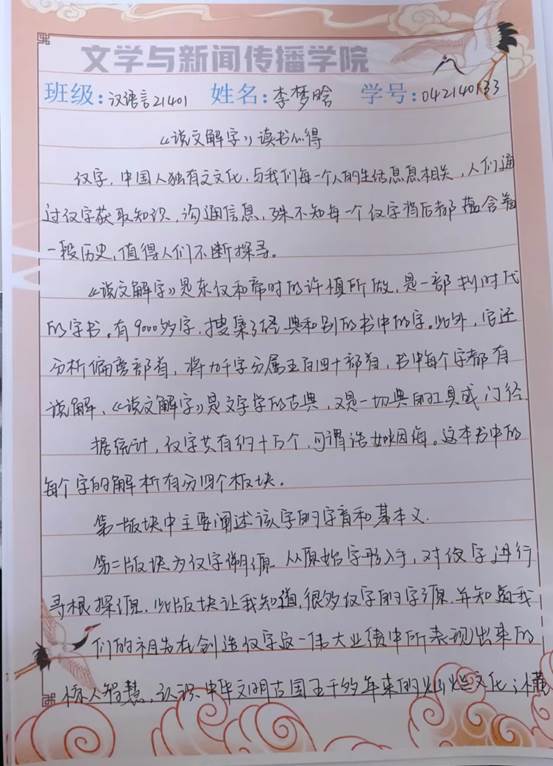 文学与新闻传播学院
班级:汉语言21401 姓名:李梦晗 学号:042140133
《说文解字》读书心得
汉字,中国人独有之文化,与我们每一个人的生活息息相关,人们通
过汉字获取知识,沟通信息,殊不知每一个汉字背后都蕴含着
一段历史,值得人们不断探寻。
《说文解字》是东汉和帝时的许慎所做,是一部划时代
的字书。有9000多字,搜集了经典和别的书中的字。此外,它还
分析偏旁部首,将九千字分属五百四十部首,书中每个字都有
说解,《说文解字》是文字学的古典,又是一切典的工具或门径
据统计,汉字共有约十万个,可谓浩如烟海。这本书中的
每个字的解析有分四个板块。
第一版块中主要阐述该字的字音和基本义.
第二版块为汉字溯源 从原始字形入手,对汉字进行
寻根探源,此版块让我知道,很多汉字的字源,并知道我
们的祖先在创造汉字这一伟大业绩中所表现出来的
惊人智慧,认识中华文明古国五千多年来的灿烂文化,